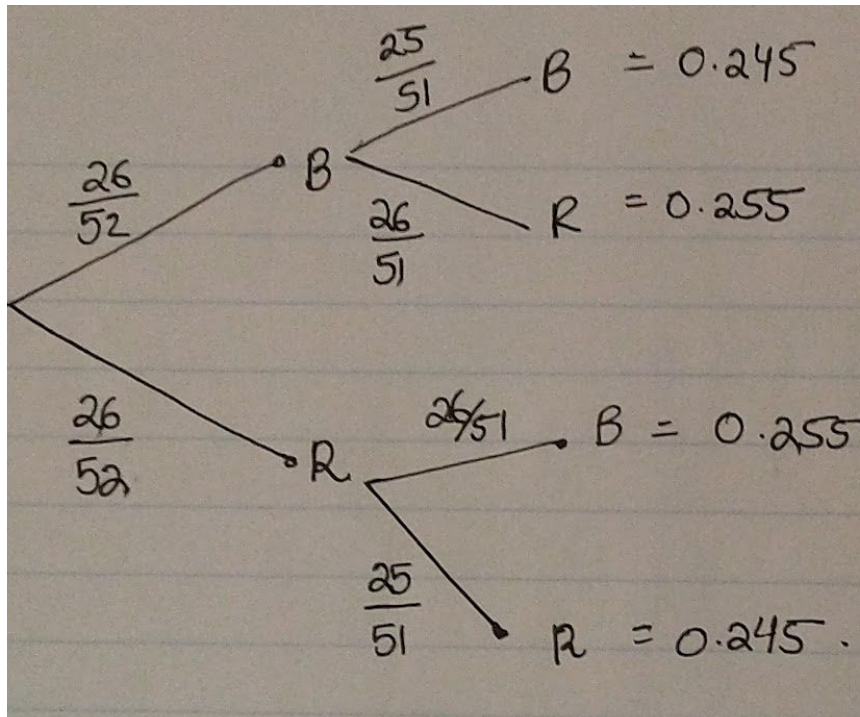 25/51 B = 0.245
26/52 B
26/51 R = 0.255
26/52 R
26/51 B = 0.255
25/51 R = 0.245.